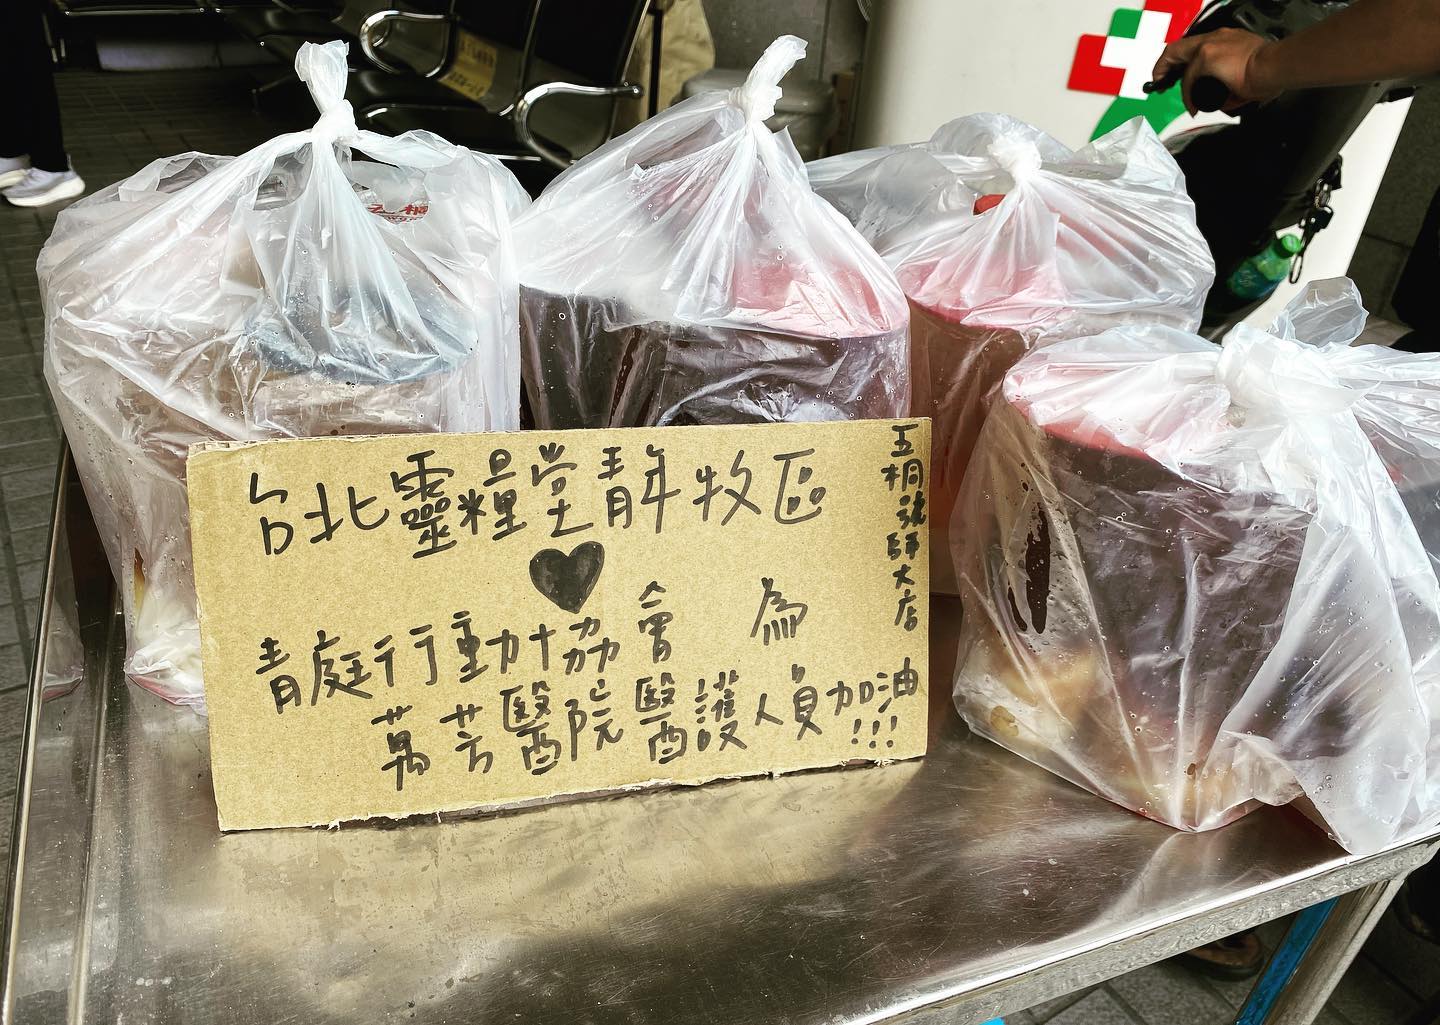 台北靈糧堂青年牧區
青庭行動協會 為
萬芳醫院醫護人員加油!!!
五桐號師大店